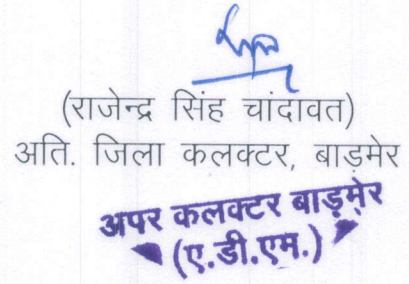 (राजेन्द्र सिंह चांदावत)
अति. जिला कलक्टर, बाड़मेर
अपर कलक्टर बाड़मेर
(ए.डी.एम.)